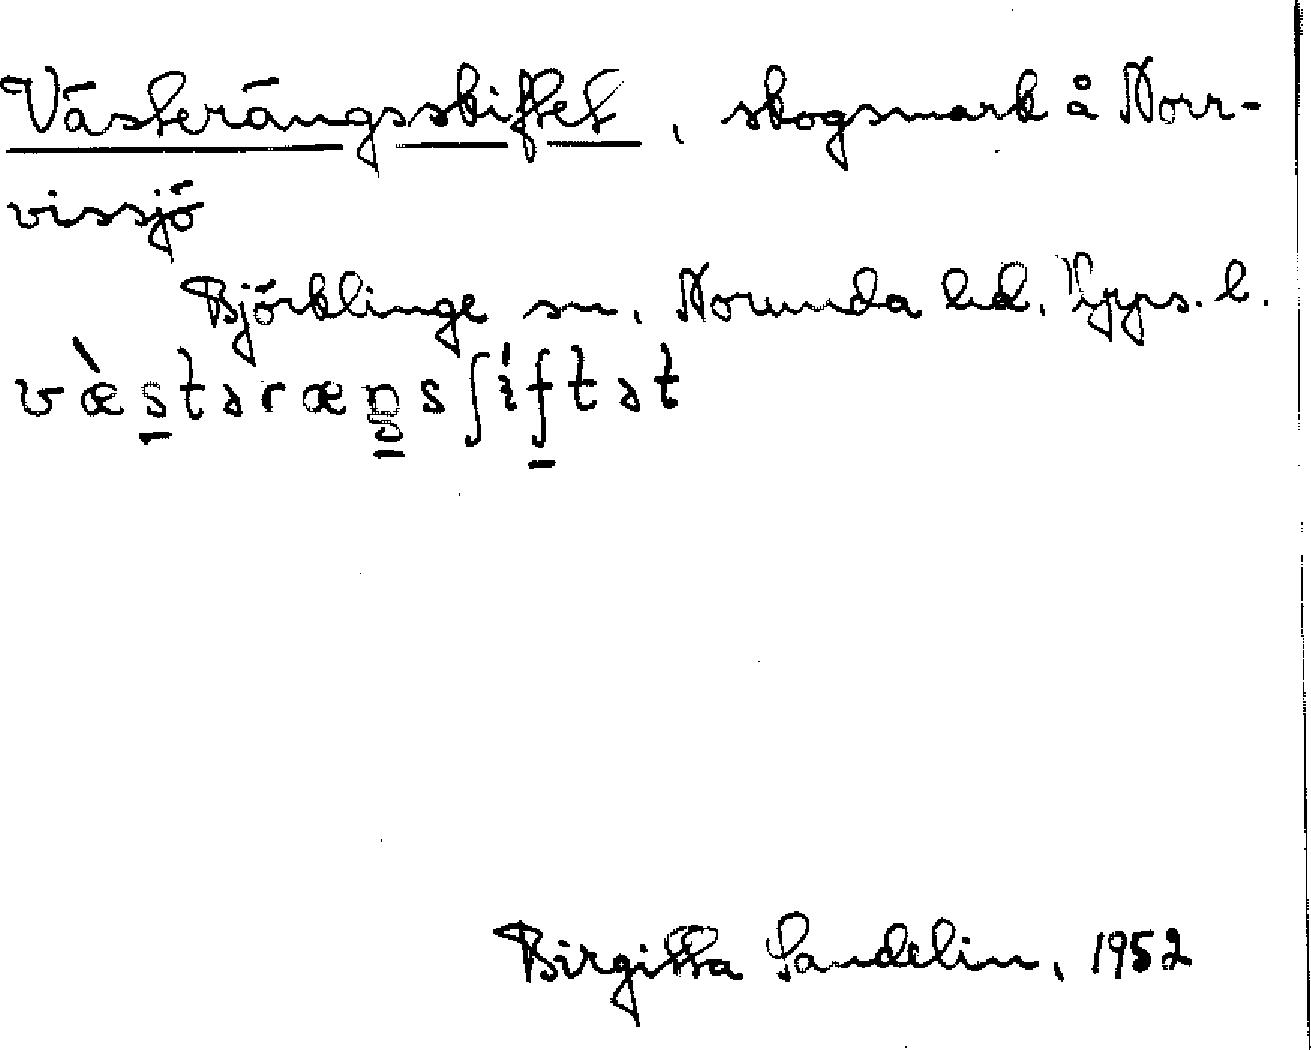 Västerängsskiftet, skogsmark å Norr-
vissjö
Björklinge sn, Norunda hd. Upps. l.
væ̀stəræŋsʃiftət
Birgitta Sandelin, 1952